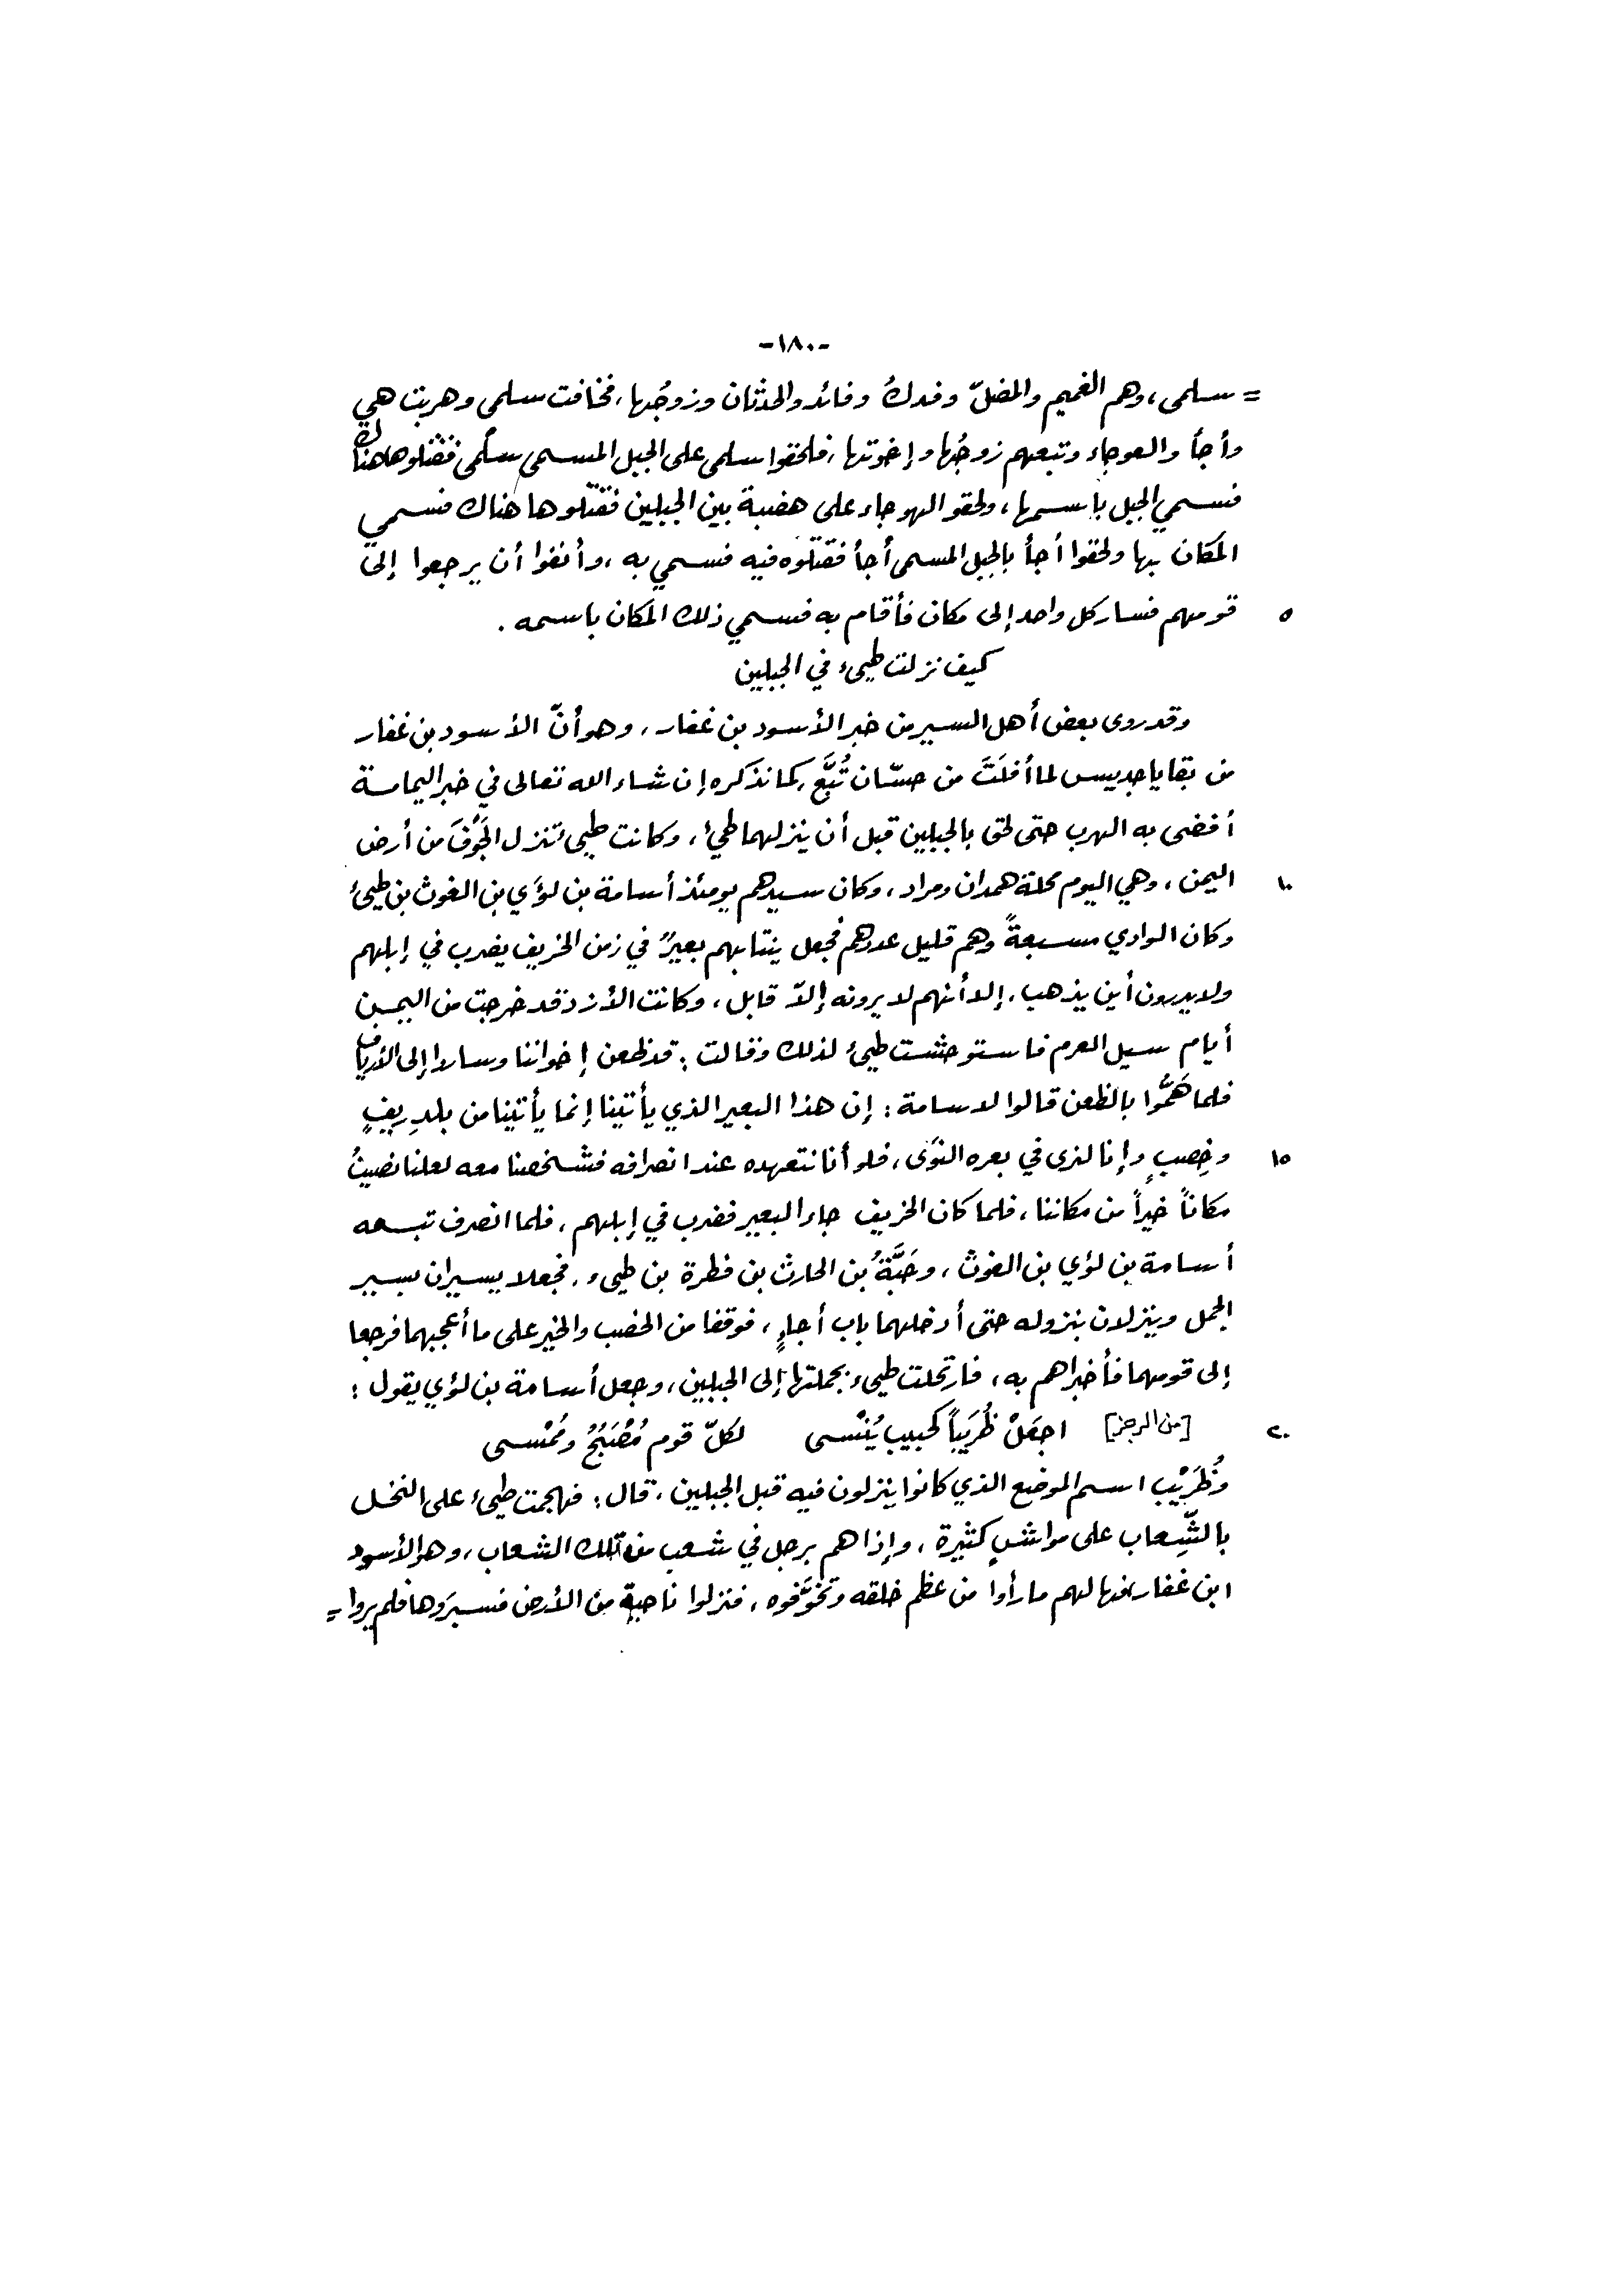 -١٨٠-
= سلمى، وهم الغميم والمضلّ وفدكُ وفائد والحدثان وزوجُها، فخافت سلمى وهربت هي
وأجأ والعوجاء وتبعهم زوجُها وإخوتها، فلحقوا سلمى على الجبل المسمى سلْمى فقتلوها هناك
فسمي الجبل باسمها، ولحقوا الهوجاء على هضبة بين الجبلين فقتلوها هناك فسمي
المكان بها ولحقوا أجأ بالجبل المسمى أجأ فقتلوه فيه فسمي به، وأنفوا أن يرجعوا إلى
٥ قومهم فسار كل واحد إلى مكان فأقام به فسمي ذلك المكان باسمه .
كيف نزلت طيىء في الجبلين
وقد روى بعض أهل السير من خبر الأسود بن غفار، وهو أنّ الأسود بن غفار
من بقايا جديس لما أفلَتَ من حسّان تُبَّع، كما نذكره إن شاء الله تعالى في خبر اليمامة
أفضى به الهرب حتى لحق بالجبلين قبل أن ينزلهما طيء، وكانت طيىء تنزل الجَوْفَ من أرض
١٠ اليمن، وهي اليوم محلة همدان ومراد، وكان سيدهم يومئذ أسامة بن لؤَي بن الغوث بن طيىء
وكان الوادي مسبعةً وهم قليل عددهم فجعل ينتابهم بعيرٌ في زمن الخريف يضرب في إبلهم
ولا يدرون أين يذهب، إلا أنهم لا يرونه إلاّ قابل، وكانت الأزد قد خرجت من اليمن
أيام سيل العرم فاستوحشت طيىء لذلك وقالت : قد ظعن إخواننا وساروا إلى الأرياف
فلما هَمُّوا بالظعن قالوا لاسامة : إن هذا البعير الذي يأتينا إنما يأتينا من بلدِ ريفٍ
١٥ وخِصبٍ وإنا لنرى في بعره النوَى، فلو أنا نتعهده عند انصرافه فشخصنا معه لعلنا نصيبُ
مكاناً خيراً من مكاننا، فلما كان الخريف جاء البعير فضرب في إبلهم، فلما انصرف تبعه
أسامة بن لؤي بن الغوث، وحَبَّةُ بن الحارث بن فطرة بن طيىء، فجعلا يسيران بسير
الجمل وينزلان بنزوله حتى أدخلهما باب أجاءٍ، فوقفا من الخصب والخير على ما أعجبهما فرجعا
إلى قومهما فأخبراهم به، فارتحلت طيىء بجملتها إلى الجبلين، وجعل أسامة بن لؤي يقول :
٢٠ [من الرجز] اجعَلْ ظُرَيباً كحبيب يُنْسى لكلّ قوم مُصْبَحٌ ومُمْسى
وظُرَيْب اسم الموضع الذي كانوا ينزلون فيه قبل الجبلين، قال : فهجمت طيىء على النخل
بالشِّعاب على مواشٍ كثيرة، وإذا هم برجل في شعب من تلك الشعاب، وهو الأسود
ابن غفار فهالهم ما رأوا من عظم خلقه وتخوَّفوه، فنزلوا ناحية من الأرض فسبروها فلم يروا =